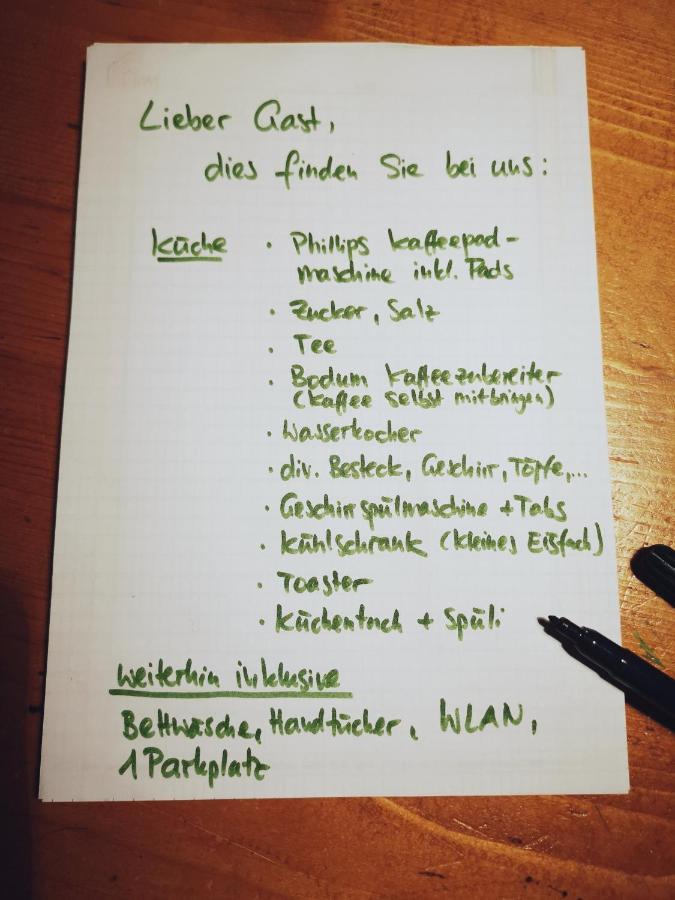 Lieber Gast,
dies finden Sie bei uns:
Küche · Phillips Kaffeepad-
maschine inkl. Pads
· Zucker, Salz
· Tee
· Bodum Kaffeezubereiter
(Kaffee selbst mitbringen)
· Wasserkocher
· div. Besteck, Geschirr, Töpfe,...
· Geschirrspülmaschine + Tabs
· Kühlschrank (kleines Eisfach)
· Toaster
· Küchentuch + Spüli
Weiterhin inklusive
Bettwäsche, Handtücher, WLAN,
1 Parkplatz